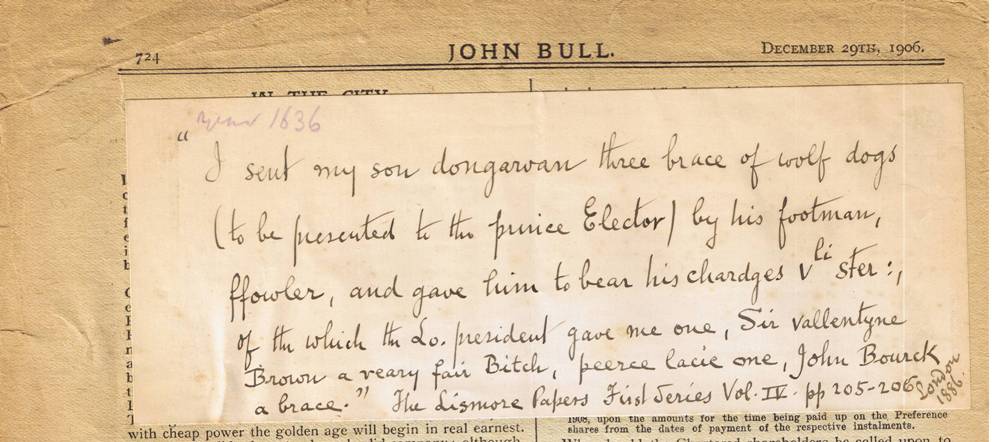 724
JOHN BULL.
DECEMBER 29TH, 1906.
IN THE CITY
year 1636
"
I sent my son dongarvan three brace of wolf dogs
(to be presented to the prince Elector) by his footman,
ffowler, and gave him to bear his chardges vli ster:,
of the which the Lo. president gave me one, Sir vallentyne
Brown a veary fair Bitch, peerce lacie one, John Bourck
a brace." The Lismore Papers First Series Vol. IV. pp 205-206
London
1886.
with cheap power the golden age will begin in real earnest.
1908, upon the amounts for the time being paid up on the Preference
shares from the dates of payment of the respective instalments.